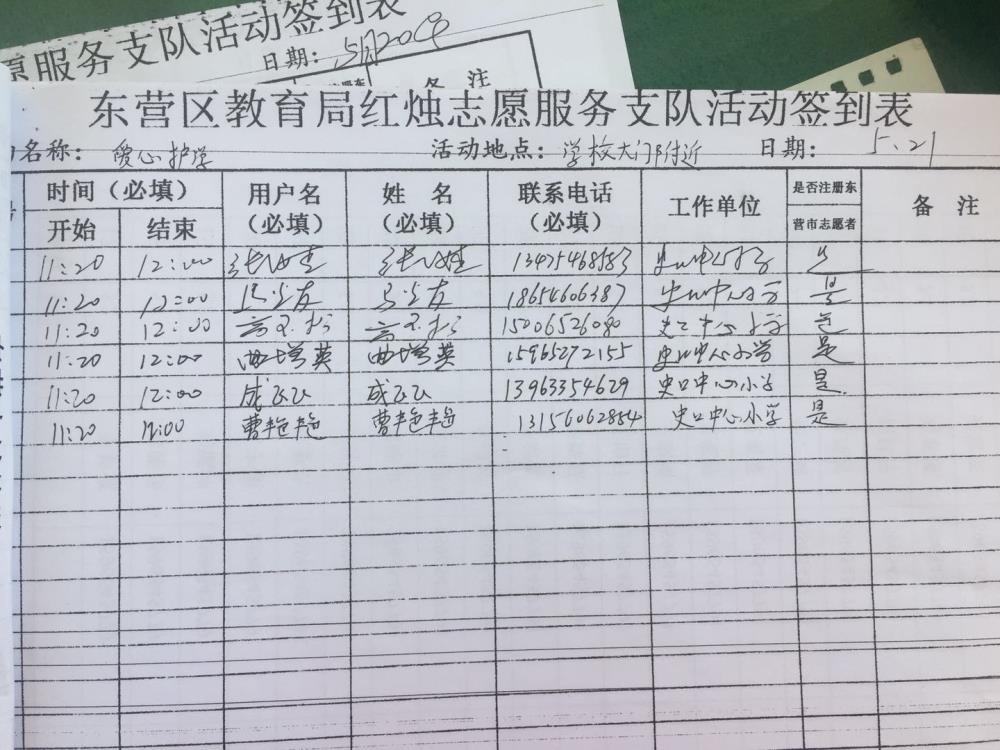 愿服务支队活动签到表
日期：5月20日
备 注
东营区教育局红烛志愿服务支队活动签到表
名称：爱心护学 活动地点：学校大门附近 日期：5.21
时间（必填） 用户名（必填） 姓 名（必填） 联系电话（必填） 工作单位 是否注册东营市志愿者 备 注
开始 结束
11:20 12:00 13475468583 史口中心小学
11:20 12:00 18654606387 史口中心小学 是
11:20 12:00 15006526080 史口中心小学 是
11:20 12:00 曲增英 曲增英 15965272155 史口中心小学 是
11:20 12:00 13963354629 史口中心小学 是
11:20 12:00 曹艳艳 曹艳艳 13156062884 史口中心小学 是